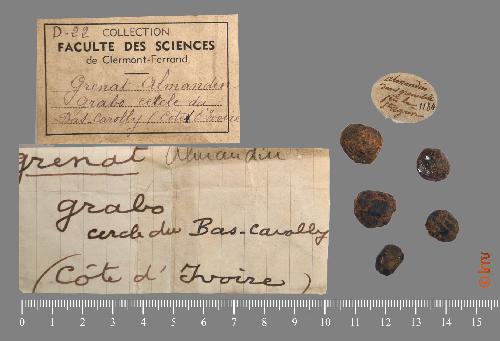 D-22 COLLECTION
FACULTE DES SCIENCES
de Clermont-Ferrand
Grenat Almandin
Grabo cercle du
Bas-Cavally (Côte d'Ivoire
grenat Almandin
grabo
cercle du Bas-Cavally
(Côte d'Ivoire)
Almandin
1184
0 1 2 3 4 5 6 7 8 9 10 11 12 13 14 15